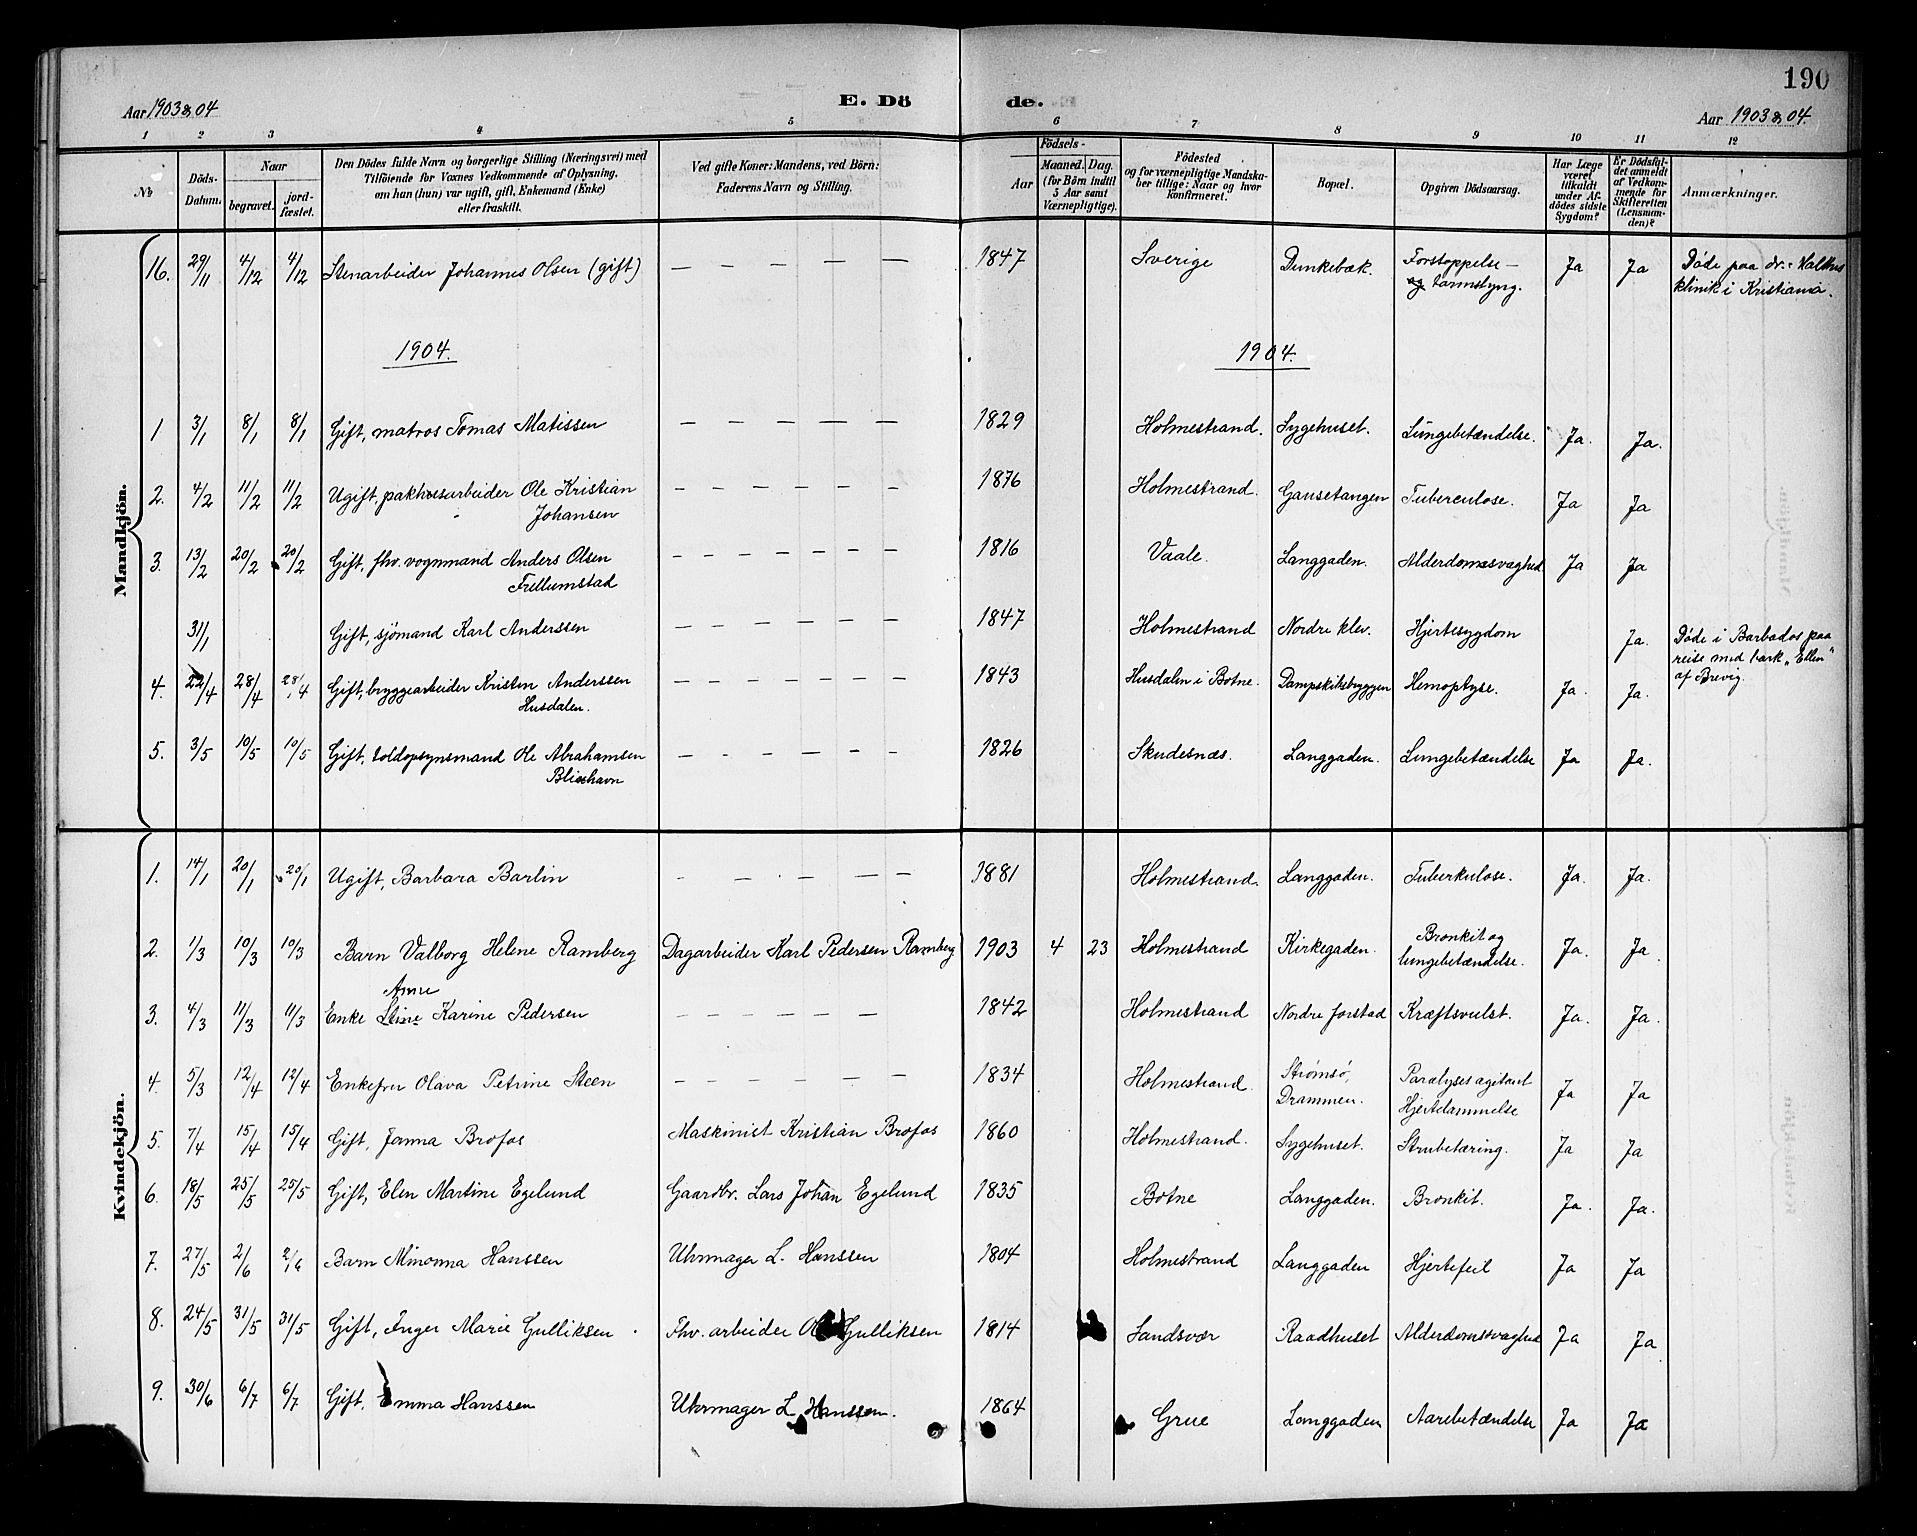 190
Aar 1903 & 04
E. Dö de.
Aar 1903 & 04.
1 2 3 4 5 6 7 8 9 10 11 12
No
Döds-Datum.
Naar
begravet.
jordfæstet.
Den Dödes fulde Navn og borgerlige Stilling (Næringsvei) med
Tilföiende for Voxnes Vedkommende af Oplysning,
om han (hun) var ugift, gift, Enkemand (Enke)
eller fraskilt.
Ved gifte Koner: Mandens, ved Börn:
Faderens Navn og Stilling.
Födsels-
Aar
Maaned. Dag.
(for Börn indtil
5 Aar samt
Værnepligtige).
Födested
og for værnepligtige Mandskaber tillige: Naar og hvor
konfirmeret.
Bopæl.
Opgiven Dödsaarsag.
Har Læge
været
tilkaldt
under Afdödes sidste
Sygdom?
Er Dödsfaldet anmeldt
af Vedkommende for
Skifteretten
(Lensmanden)?
Anmærkninger.
Mandkjön.
16. 29/11 4/12 4/12 Stenarbeider Johannes Olsen (gift) — — — — — 1847 Sverige Dunkebæk. Forstoppelse — og tarmslyng. Ja Ja Døde paa dr. Malthes klinik i Kristiania.
1904. 1904.
1 3/1 8/1 8/1 Gift, matros Tomas Matissen — — — — — 1829 Holmestrand. Sygehuset. Lungebetændelse. Ja. Ja.
2. 4/2 11/2 11/2 Ugift, pakhusarbeider Ole Kristian Johansen — — — — — 1876 Holmestrand. Gausetangen Tuberculose. Ja Ja
3. 13/2 20/2 20/2 Gift, fhv. vognmand Anders Olsen Frellumstad — — — — — — 1816 Vaale. Langgaden. Alderdomssvaghed Ja Ja
31/1 Gift, sjömand Karl Anderssen — — — — — — 1847 Holmestrand Nordre klev. Hjertesygdom Ja. Døde i Barbados paa reise med bark „Ellen" af Brevig.
4. 22/4 28/4 28/4 Gift, bryggearbeider Kristen Anderssen Husdalen. — — — — — — 1843 Husdalen i Botne. Dampskibsbryggen Hemoptyse. Ja. Ja.
5. 3/5 10/5 10/5 Gift, toldopsynsmand Ole Abrahamsen Blixhavn — - - — - — 1826 Skudesnæs. Langgaden. Lungebetændelse Ja Ja.
Kvindekjön.
1. 14/1 20/1 20/1 Ugift, Barbara Barlin — — — — — 1881 Holmestrand. Langgaden. Tuberkulose. Ja. Ja.
2. 1/3 10/3 10/3 Barn Valborg Helene Ramberg Dagarbeider Karl Pedersen Ramberg. 1903 4 23 Holmestrand Kirkegaden. Bronkit og lungebetændelse. Ja. Ja.
3. 4/3 11/3 11/3 Enke Stine Anne Karine Pedersen — — — — — — 1842 Holmestrand Nordre forstad Kræftsvulst. Ja. Ja.
4. 5/3 12/4 12/4 Enkefru Olava Petrine Steen — — — — — — 1834 Holmestrand. Strømsø, Drammen. Paralyses agitant Hjertelammelse Ja Ja
5. 7/4 15/4 15/4 Gift, Janna Brofos Maskinist Kristian Brofos 1860 Holmestrand. Sygehuset. Strubetæring. Ja Ja
6. 18/5 25/5 25/5 Gift, Elen Martine Egelund Gaardbr. Lars Johan Egelund 1835 Botne Langgaden. Bronkit. Ja. Ja.
7. 27/5 2/6 2/6 Barn Minonna Hanssen Uhrmager L. Hanssen 1804 Holmestrand Langgaden Hjertefeil Ja Ja
8. 24/5 31/5 31/5 Gift, Inger Marie Gulliksen. Fhv. arbeider Gulliksen 1814 Sandsvær Raadhuset Alderdomssvaghed Ja Ja
9. 30/6 6/7 6/7 Gift, Emma Hanssen Uhrmager L. Hanssen. 1864 Grue Langgaden Aarebetændelse Ja Ja